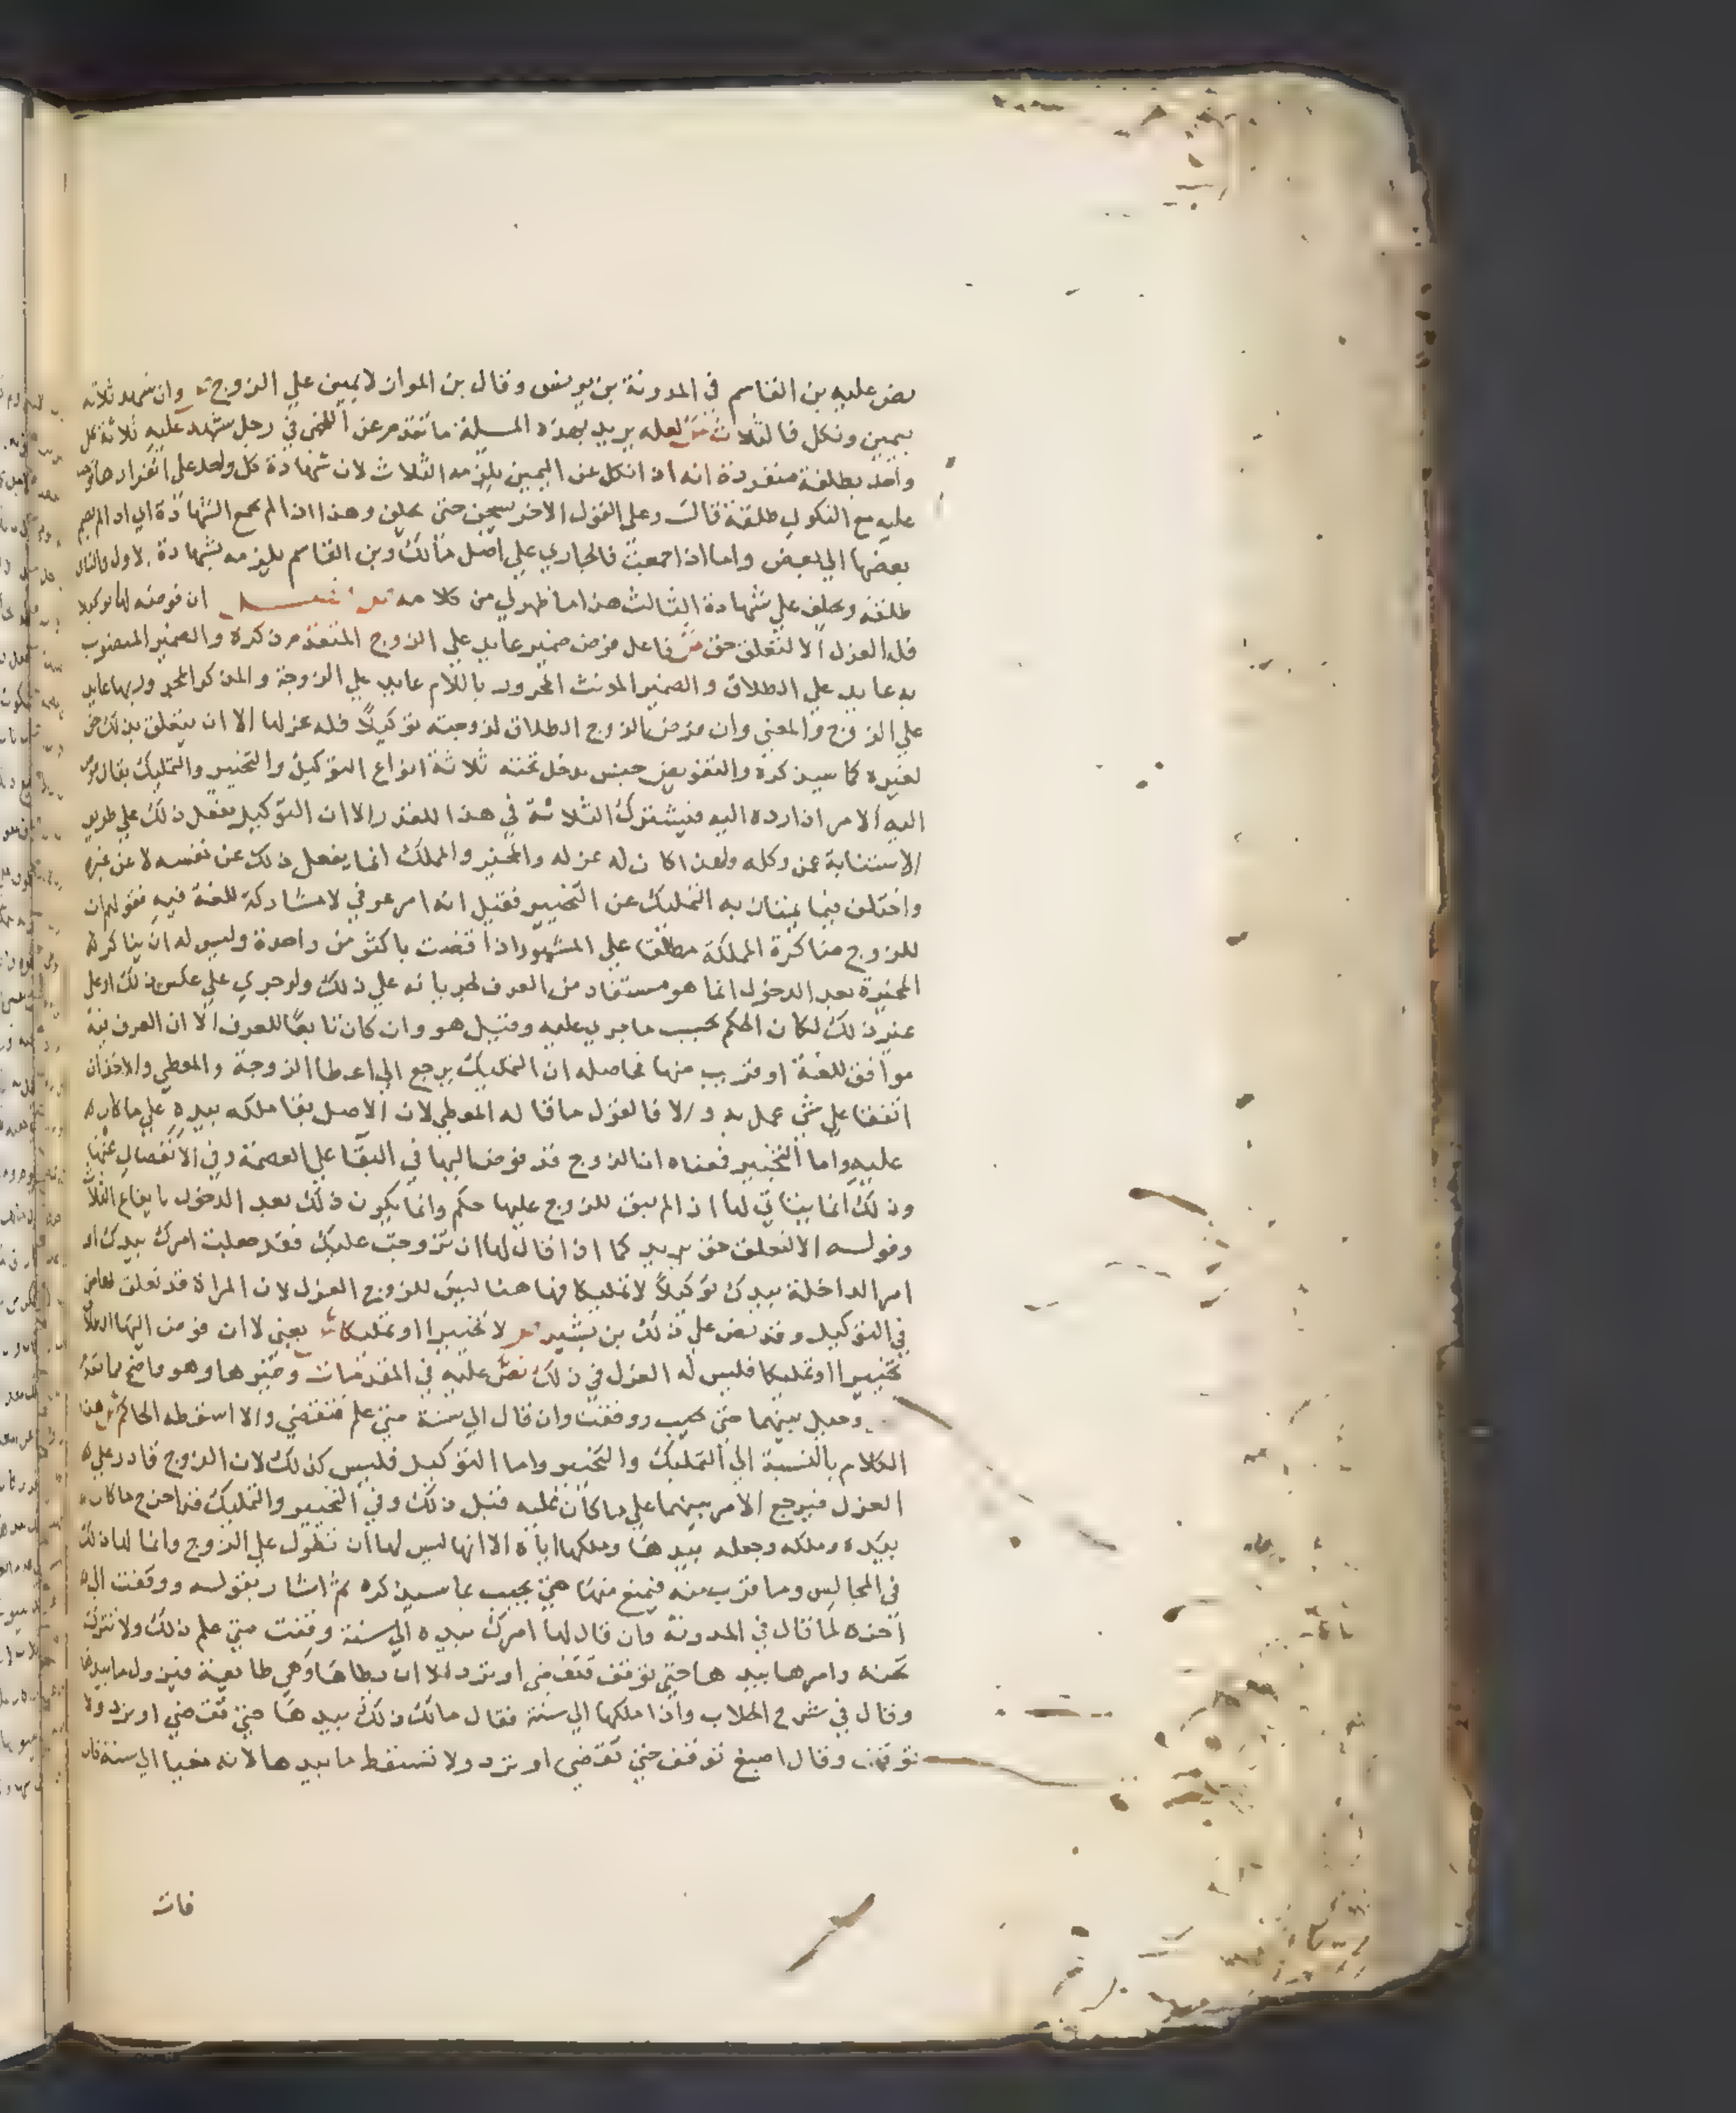 نص عليه بن القاسم في المدونة بن يونس وقال بن المواز لا يمين علي الزوج وان شهد ثلاثه
بيمين ونكل فالثلاث ش لعله يريد بهذه المسلة ما تقدم عن اللخمي في رجل شهد عليه ثلاثة كل
واحد بطلقة منفردة انه اذا نكل عن اليمين يلزمه الثلاث لان شهادة كل واحد علي انفرادها
عليه مع النكول طلقة قال وعلي القول الاخر يسجن حتي يحلف وهذا اذا لم تجمع الشهادة اي اذا لم يضم
بعضها الي بعض واما اذا جمعت فالجاري علي اصل مالك وبن القاسم يلزمه بشهادة الاول والثاني
طلقة ويحلف علي شهادة الثالث هذا ما ظهر لي من كلامه فصل ان فوضه لها توكيلا
فله العزل الا لتعلق حق ش فاعل فوض ضمير عايد علي الزوج المتقدم ذكره والضمير المنصوب
به عايد علي الطلاق والضمير المونث المجرور باللام عايد علي الزوجة والمذكر المجرور بها عايد
علي الزوج والمعني وان فوض الزوج الطلاق لزوجته توكيلا فله عزلها الا ان يتعلق بذلك حق
لغيره كما سيذكره والتفويض جنس يدخل تحته ثلاثة انواع التوكيل والتخيير والتمليك يقال فوض
اليه الامر اذا رده اليه فيشترك الثلاثة في هذا القدر الا ان التوكيل يفعل ذلك علي طريق
الاستنابة عمن وكله ولهذا كان له عزله والمخير والمملك انما يفعل ذلك عن نفسه لا عن غيره
واختلف فيما يمتاز به التمليك عن التخيير فقيل انه امر عرفي لا مشاركة للغة فيه فقولهم ان
للزوج مناكرة المملكة مطلقا علي المشهور اذا قضت باكثر من واحدة وليس له ان يناكر
المخيرة بعد الدخول انما هو مستفاد من العرف لجريانه علي ذلك ولو جري علي عكس ذلك او علي
غير ذلك لكان الحكم بحسب ما جري عليه وقيل هو وان كان تابعا للعرف الا ان العرف فيه
موافق للغة او قريب منها فحاصله ان التمليك يرجع الي اعطا الزوجة والمعطي والاخذ ان
اتفقا علي شي عمل به والا فالقول ما قاله المعطي لان الاصل بقا ملكه بيده علي ما كان
عليه واما التخيير فمعناه ان الزوج قد فوض اليها في البقا علي العصمة وفي الانفصال عنها
وذلك انما يتاتي لها اذا لم يبق للزوج عليها حكم وانما يكون ذلك بعد الدخول بايقاع الثلاث
وقوله الا لتعلق حق يريد كما اذا قال لها ان تزوجت عليك فقد جعلت امرك بيدك او
امر الداخلة بيدك توكيلا لا تمليكا فها هنا ليس للزوج العزل لان المراة قد تعلق لها حق
في التوكيل وقد نص علي ذلك بن بشير لا تخييرا او تمليكا ش يعني لا ان فوض اليها الطلاق
تخييرا او تمليكا فليس له العزل في ذلك نص عليه في المقدمات وغيرها وهو واضح مما تقدم
وحيل بينهما حتي تجيب ووقفت وان قال الي سنة متي علم فتقضي والا اسقطه الحاكم ش هذا
الكلام بالنسبة الي التمليك والتخيير واما التوكيل فليس كذلك لان الزوج قادر علي
العزل فيرجع الامر بينهما علي ما كان عليه قبل ذلك وفي التخيير والتمليك قد اخرج ما كان
بيده وملكه وجعله بيدها وملكها اياه الا انها ليس لها ان تطول علي الزوج وانما لها ذلك
في المجالس وما قرب منه فيمنع منها حتي تجيب بما سيذكره ثم اشار بقوله ووقفت الي
اخره لما قال في المدونة وان قال لها امرك بيده الي سنة وقفت متي علم ذلك ولا تترك
تحته وامرها بيدها حتي توقف فتقضي او ترد الا ان يطاها وهي طايعة فيزول ما بيدها
وقال في شرح الجلاب واذا ملكها الي سنة فقال مالك ذلك بيدها حتي تقضي او ترد ولا
توقف وقال اصبغ توقف حتي تقضي او ترد ولا تسقط ما بيدها لانه مغيا الي سنة فان
فات